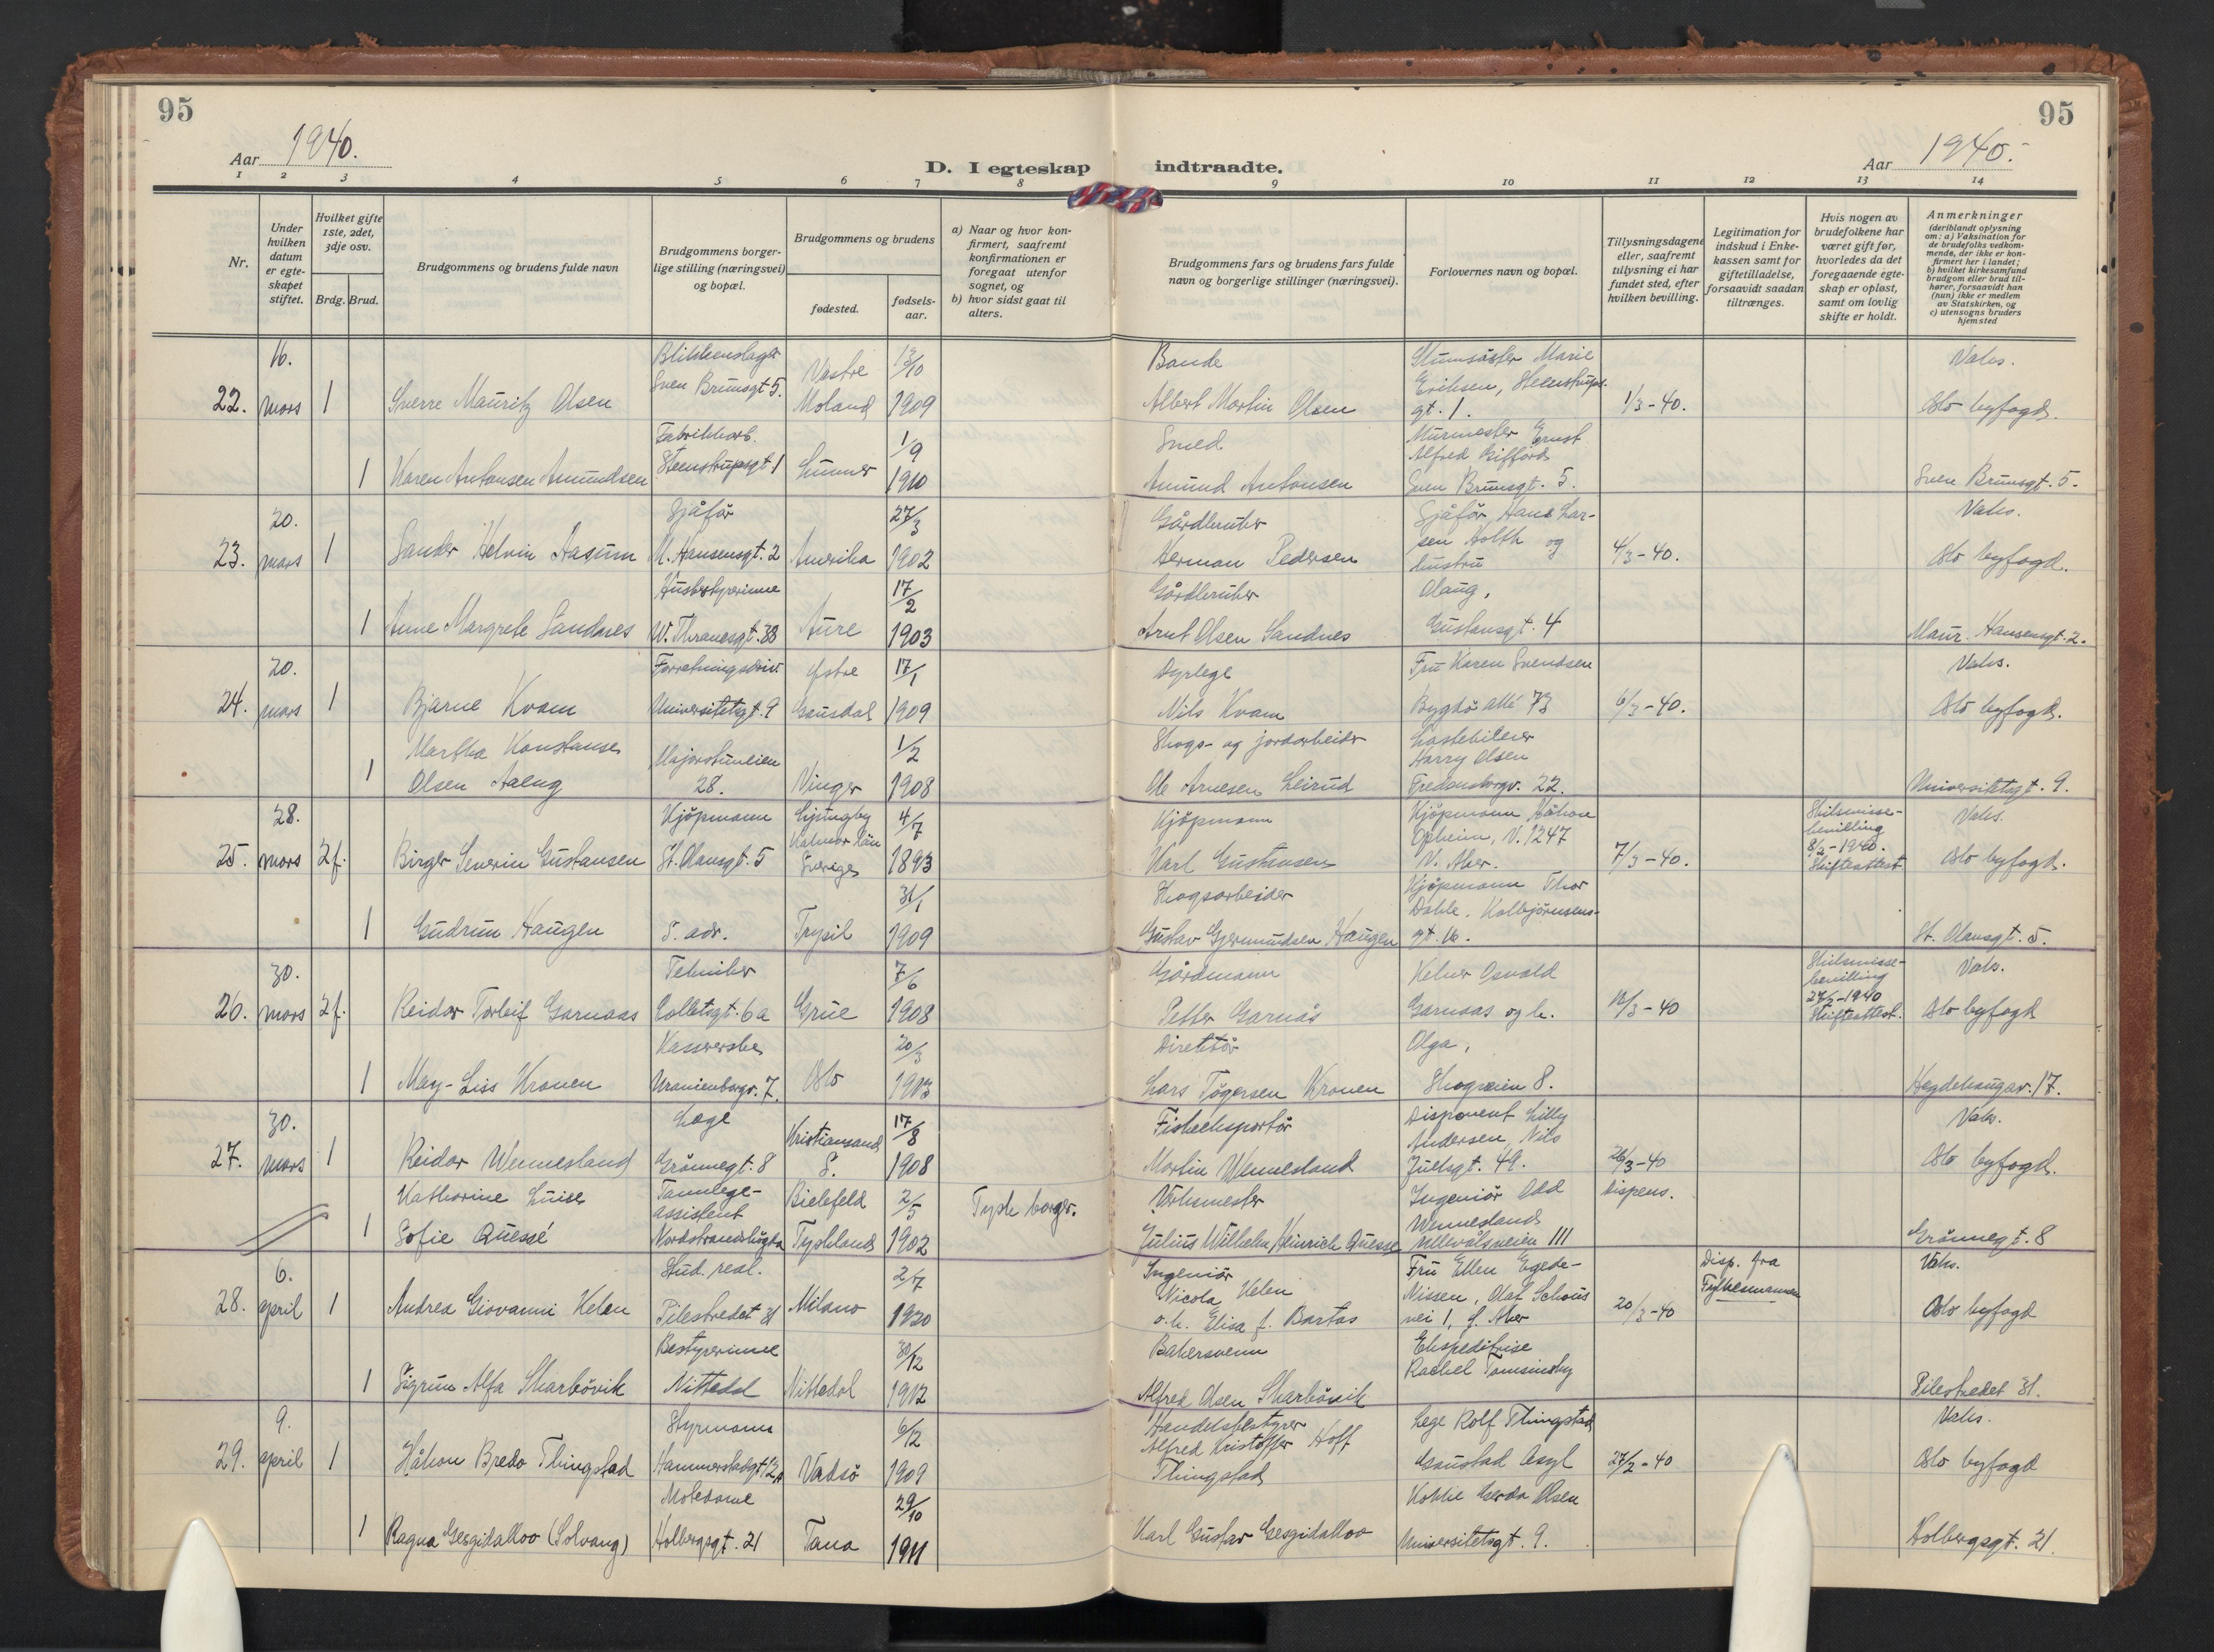 95
95
Aar 1940.
Aar 1940.
D. I egteskap indtraadte.
1 2 3 4 5 6 7 8 9 10 11 12 13 14
Nr.
Under hvilken datum er egteskapet stiftet.
Hvilket gifte 1ste, 2det, 3dje osv.
Brdg. Brud.
Brudgommens og brudens fulde navn
Brudgommens borgerlige stilling (næringsvei) og bopæl.
Brudgommens og brudens
fødested.
fødselsaar.
a) Naar og hvor konfirmert, saafremt konfirmationen er foregaat utenfor sognet, og
b) hvor sidst gaat til alters.
Brudgommens fars og brudens fars fulde navn og borgerlige stillinger (næringsvei).
Forlovernes navn og bopæl.
Tillysningsdagene eller, saafremt tillysning ei har fundet sted, efter hvilken bevilling.
Legitimation for indskud i Enkekassen samt for giftetilladelse, forsaavidt saadan tiltrænges.
Hvis nogen av brudefolkene har været gift før, hvorledes da det foregaaende egteskap er opløst, samt om lovlig skifte er holdt.
Anmerkninger
(deriblandt oplysning om: a) Vaksination for de brudefolks vedkommende, der ikke er konfirmert her i landet; b) hvilket kirkesamfund brudgom eller brud tilhører, forsaavidt han (hun) ikke er medlem av Statskirken, og c) utensogns bruders hjemsted
22. 16. mars 1 Sverre Mauritz Olsen
Blikkenslager Sven Brunsgt 5. Vestre Moland 13/10 1909
Bonde Albert Martin Olsen
Marie Eriksen, Steenstrupsgt. 1.
1/3-40.
Vaks. Oslo byfogd.
1 Karen Antonsen Amundsen
Fabrikkarb. Steenstrupsgt 1 Lunner 1/9 1910
Smed Amund Antonsen
Murmester Ernst Alfred Gifford Sven Brunsgt. 5.
Sven Brunsgt. 5.
23. 20. mars 1 Sander Helvin Aasum
Sjåfør M. Hansensgt. 2 Amerika 27/3 1902
Gårdbruker Herman Pedersen
Sjåfør Hans Larsen Holth og hustru
4/3-40.
Vaks. Oslo byfogd.
1 Anne Margrete Sandnes
Husbestyrerinne W. Thranesgt. 38 Aure 17/2 1903
Gårdbruker Arnt Olsen Sandnes
Olaug, Gustavsgt. 4
Maur. Hansensgt. 2.
24. 20. mars 1 Bjarne Kvam
Forretningsdriv. Universitetsgt. 9 Østre Gausdal 17/1 1909
Dyrlege Nils Kvam
Fru Karen Svendsen Bygdö allé 73
6/3-40.
Vaks. Oslo byfogd.
1 Martha Konstanse Olsen Aaeng
Majorstuveien 28. Vinger 1/2 1908
Skogs- og jordarbeider Ole Arnesen Leirud
Lastebileier Harry Olsen Fredensborgv. 22.
Universitetsgt. 9.
25. 28. mars 2 f. Birger Severin Gustavsen
Kjöpmann St. Olavsgt. 5 Ljungby Kalmar län Sverige 4/7 1893
Kjöpmann Karl Gustavsen
Kjöpmann Håkon Opheim, V. 1247 V. Aker.
7/3-40.
Skilsmissebevilling 8/2-1940. Skifteattest
Vaks. Oslo byfogd.
1 Gudrun Haugen
S. adr. Trysil 31/1 1909
Skogsarbeider Gustav Gjermundsen Haugen
Kjöpmann Thor Dahle, Kolbjörnsensgt. 16.
St. Olavsgt. 5.
26. 30. mars 2 f. Reidar Torleif Garnaas
Tekniker Colletsgt. 6a Grue 7/6 1908
Gårdmann Petter Garnås
Kelner Osvald Garnaas og h.
12/3-40
Skilsmissebevilling 27/2-1940 Skifteattest.
Vaks. Oslo byfogd
1 May-Liss Kronen
Kassererske Uranienborgv. 7. Oslo 20/3 1903
Direktör Lars Tögersen Kronen
Olga, Skogveien 8.
Hegdehaugsv. 17.
27. 30. mars 1 Reidar Wennesland
Lege Grönnegt. 8 Kristiansand S. 17/8 1908
Fiskeeksportör Martin Wennesland
Disponent Lilly Andersen, Nils Juelsgt. 49.
26/3-40 Dispens.
Vaks. Oslo byfogd.
1 Katharine Luise Sofie Quesse
Tannlegeassistent Nordstrandshögda Bielefeld Tyskland 2/5 1902
Tysk borger.
Verksmester Julius Wilhelm Heinrich Quesse
Ingeniör Odd Wennesland Ullevålsveien 111
Grönnegt. 8
28. 6. april 1 Andrea Giovanni Velen
Stud. real. Pilestredet 31 Milano 2/7 1920
Ingeniör Nicola Velen o. h. Elisa f. Bartos
Fru Ellen Egede-Nissen, Olaf Schous vei 1, Ø. Aker
20/3-40
Disp. fra Fylkesmannen
Vaks. Oslo byfogd
1 Sigrun Alfa Skarbövik
Bestyrerinne Nittedal Nittedal 30/12 1912
Bakersvenn Alfred Olsen Skarbövik
Ekspeditrise Rachel
Pilestredet 31.
29. 9. april 1 Håkon Bredo Thingstad
Styrmann Hammerstadsgt 12A Vadsö 6/12 1909
Handelsbestyrer Alfred Kristoffer Hoff Thingstad
Lege Rolf Thingstad Gaustad Asyl
27/2-40
Vaks. Oslo byfogd
1 Ragna Gesgidalloo (Solvang)
Motedame Holbergsgt. 21 Tana 29/10 1911
Karl Gustav Gesgidalloo
Gerda Olsen Universitetsgt. 9.
Holbergsgt. 21.